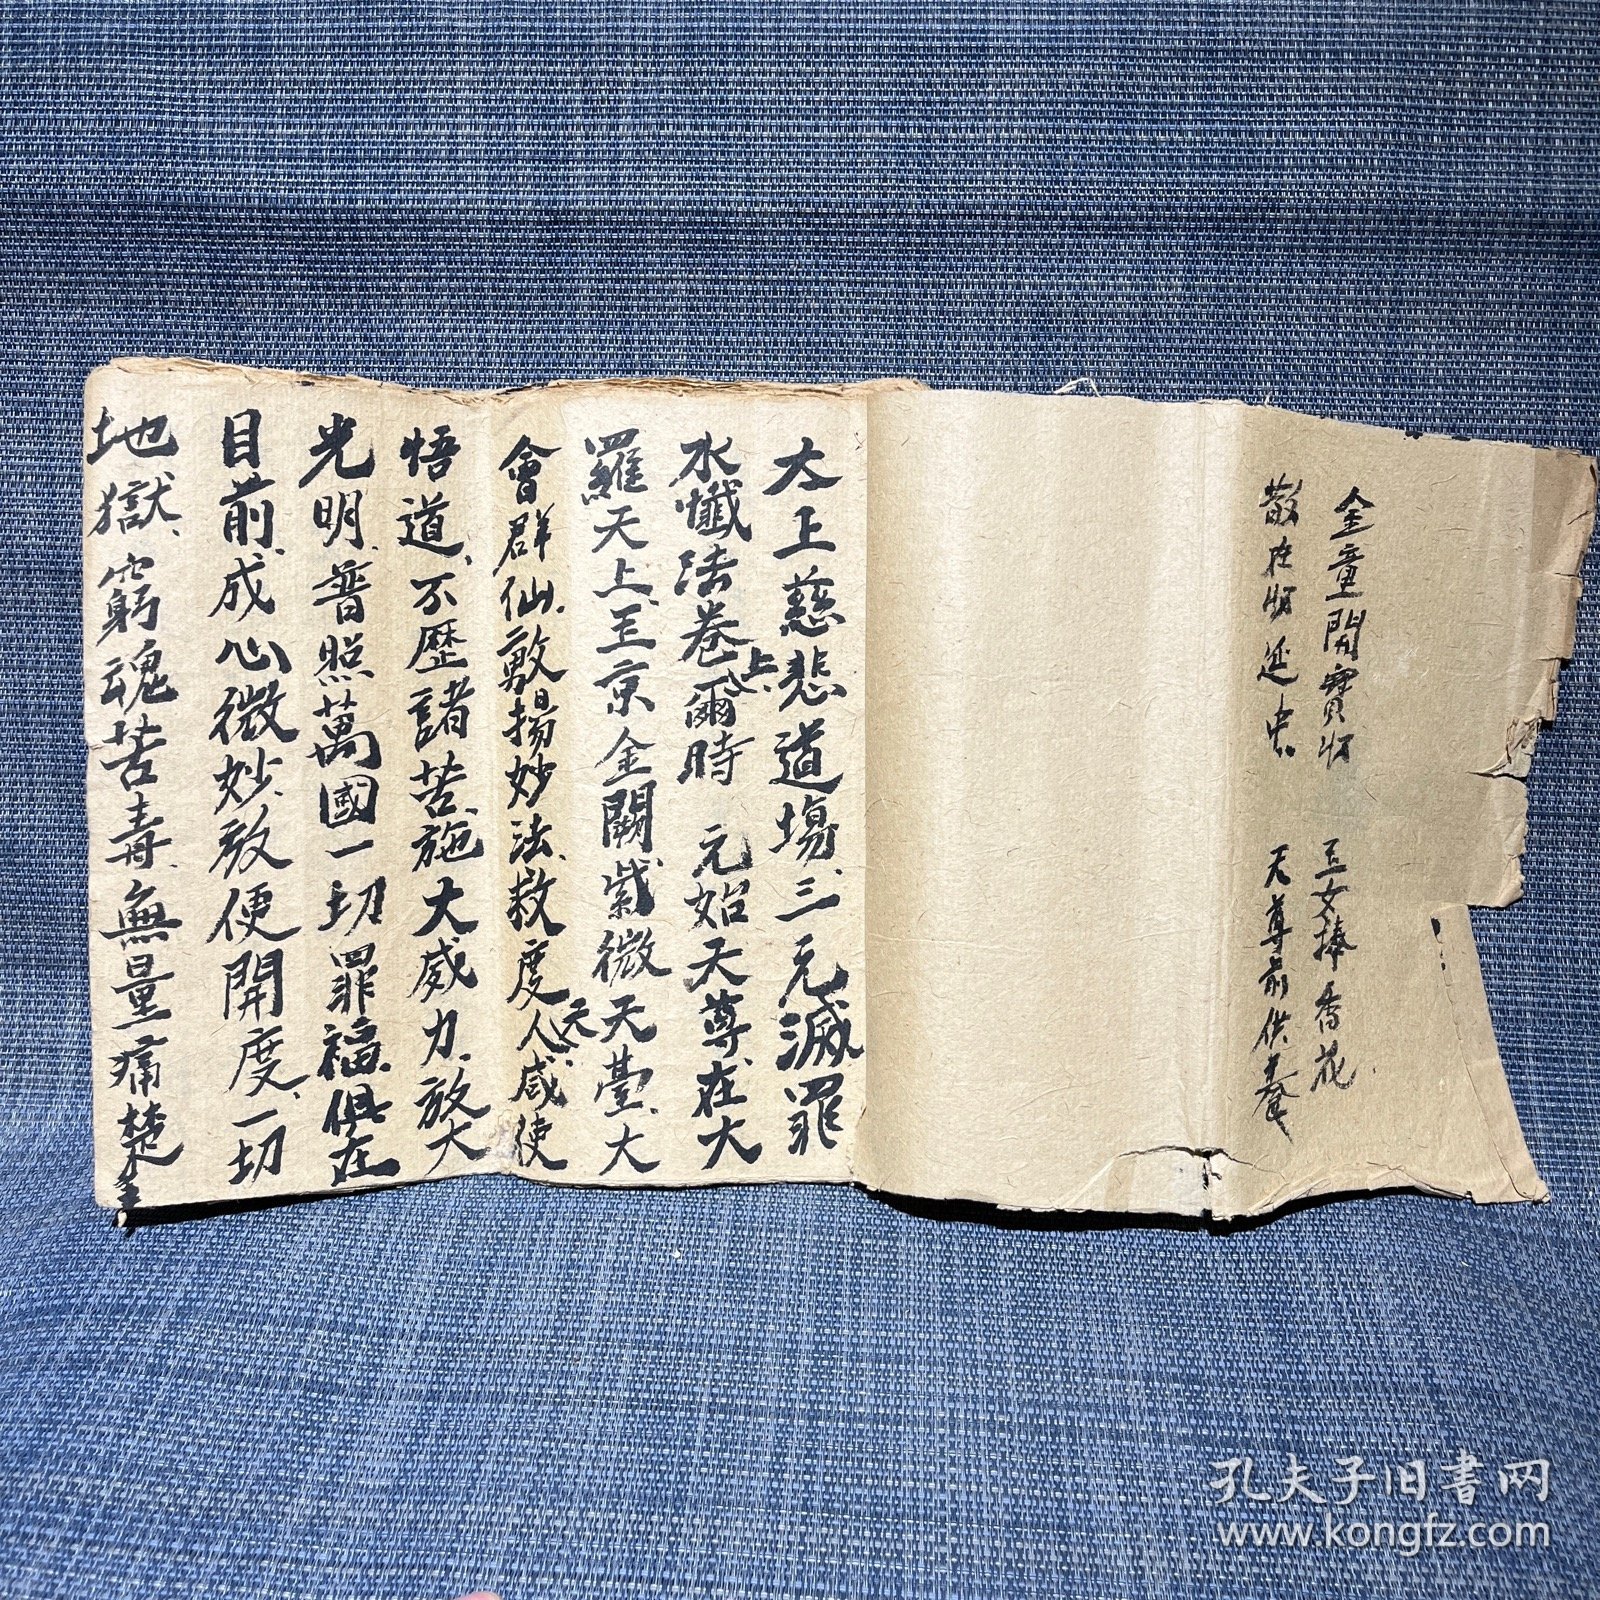 金童開寳㸞 玉女捧香花
散在㸞筵中 天尊前供養
太上慈悲道塲三元滅罪
水懺法卷上爾時 元始天尊在大
羅天上玉京金闕紫微天臺大
會群仙敷揚妙法救度天人咸使
悟道不歷諸苦施大威力放大
光明普照萬國一切罪福俱在
目前成心微妙敎便開度一切
地獄窮魂苦毒無量痛楚
孔夫子旧書网
www.kongfz.com